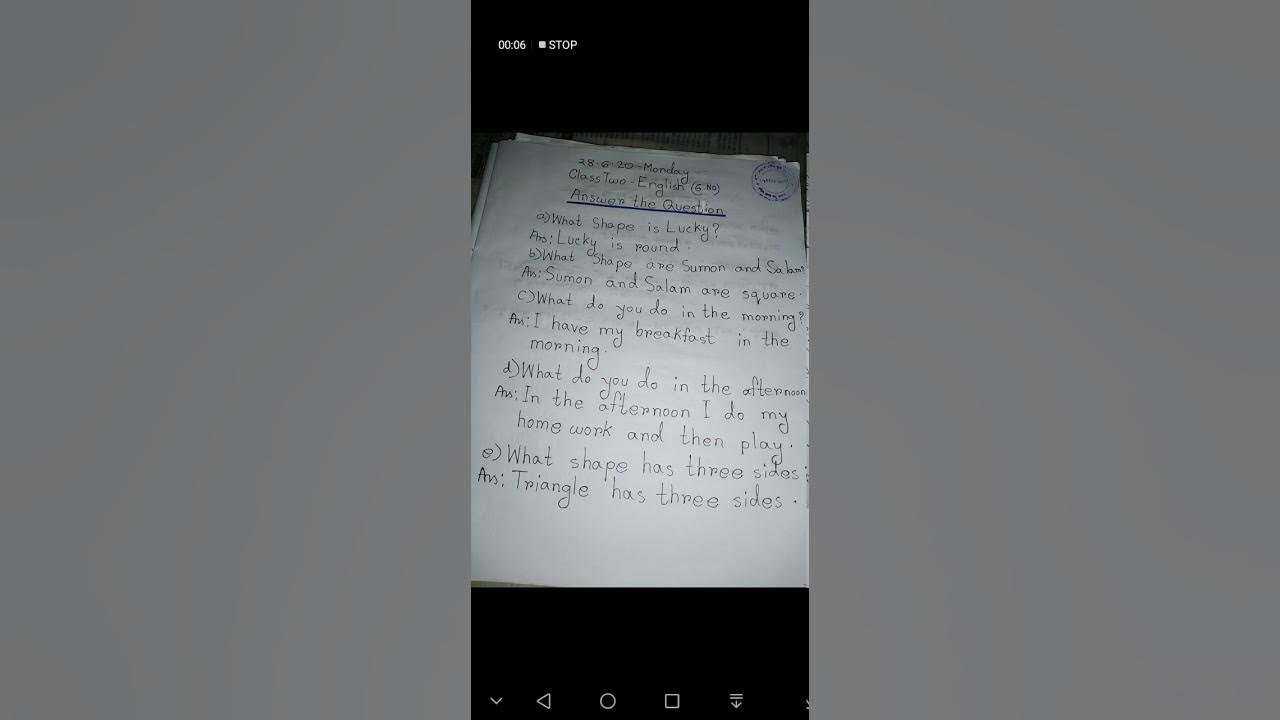 00:06 STOP
28.6.20-Monday
Class Two-English (6 No)
Answer the Question
a) What Shape is Lucky?
Ans: Lucky is round.
b) What Shape are Sumon and Salam?
Ans: Sumon and Salam are square.
c) What do you do in the morning?
Ans: I have my breakfast in the
morning.
d) What do you do in the afternoon
Ans: In the afternoon I do my
home work and then play.
e) What shape has three sides?
Ans: Triangle has three sides.